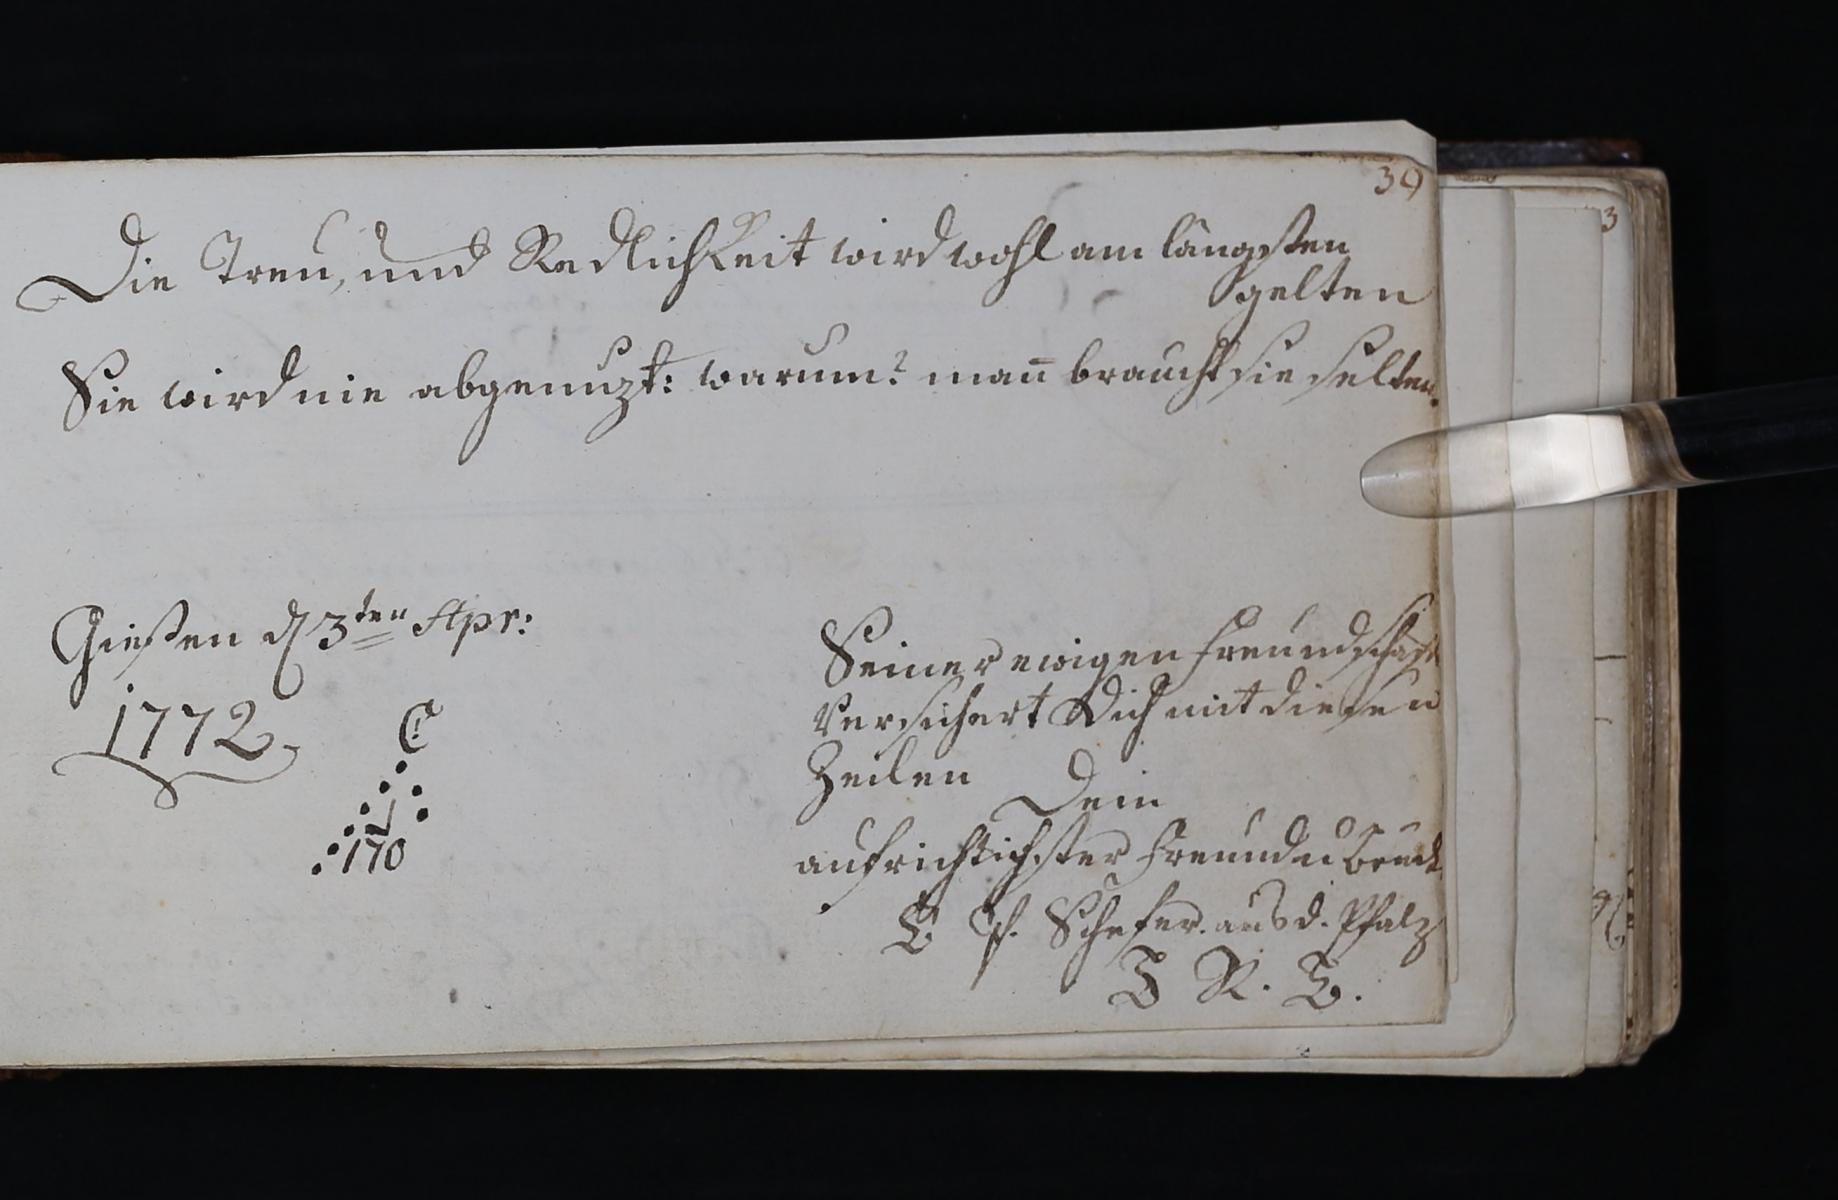 39
Die Treu, und Redlichkeit wird wohl am längsten
gelten
Sie wird nie abgenuzt: warum? man̄ braucht sie selten.
Gießen d 3ten Apr:
1772
Seiner ewigen Freundschaft
versichert Dich mit diesen
Zeilen Dein
aufrichtigster Freund u Bruder
Schefer. aus d. Pfalz
170
3